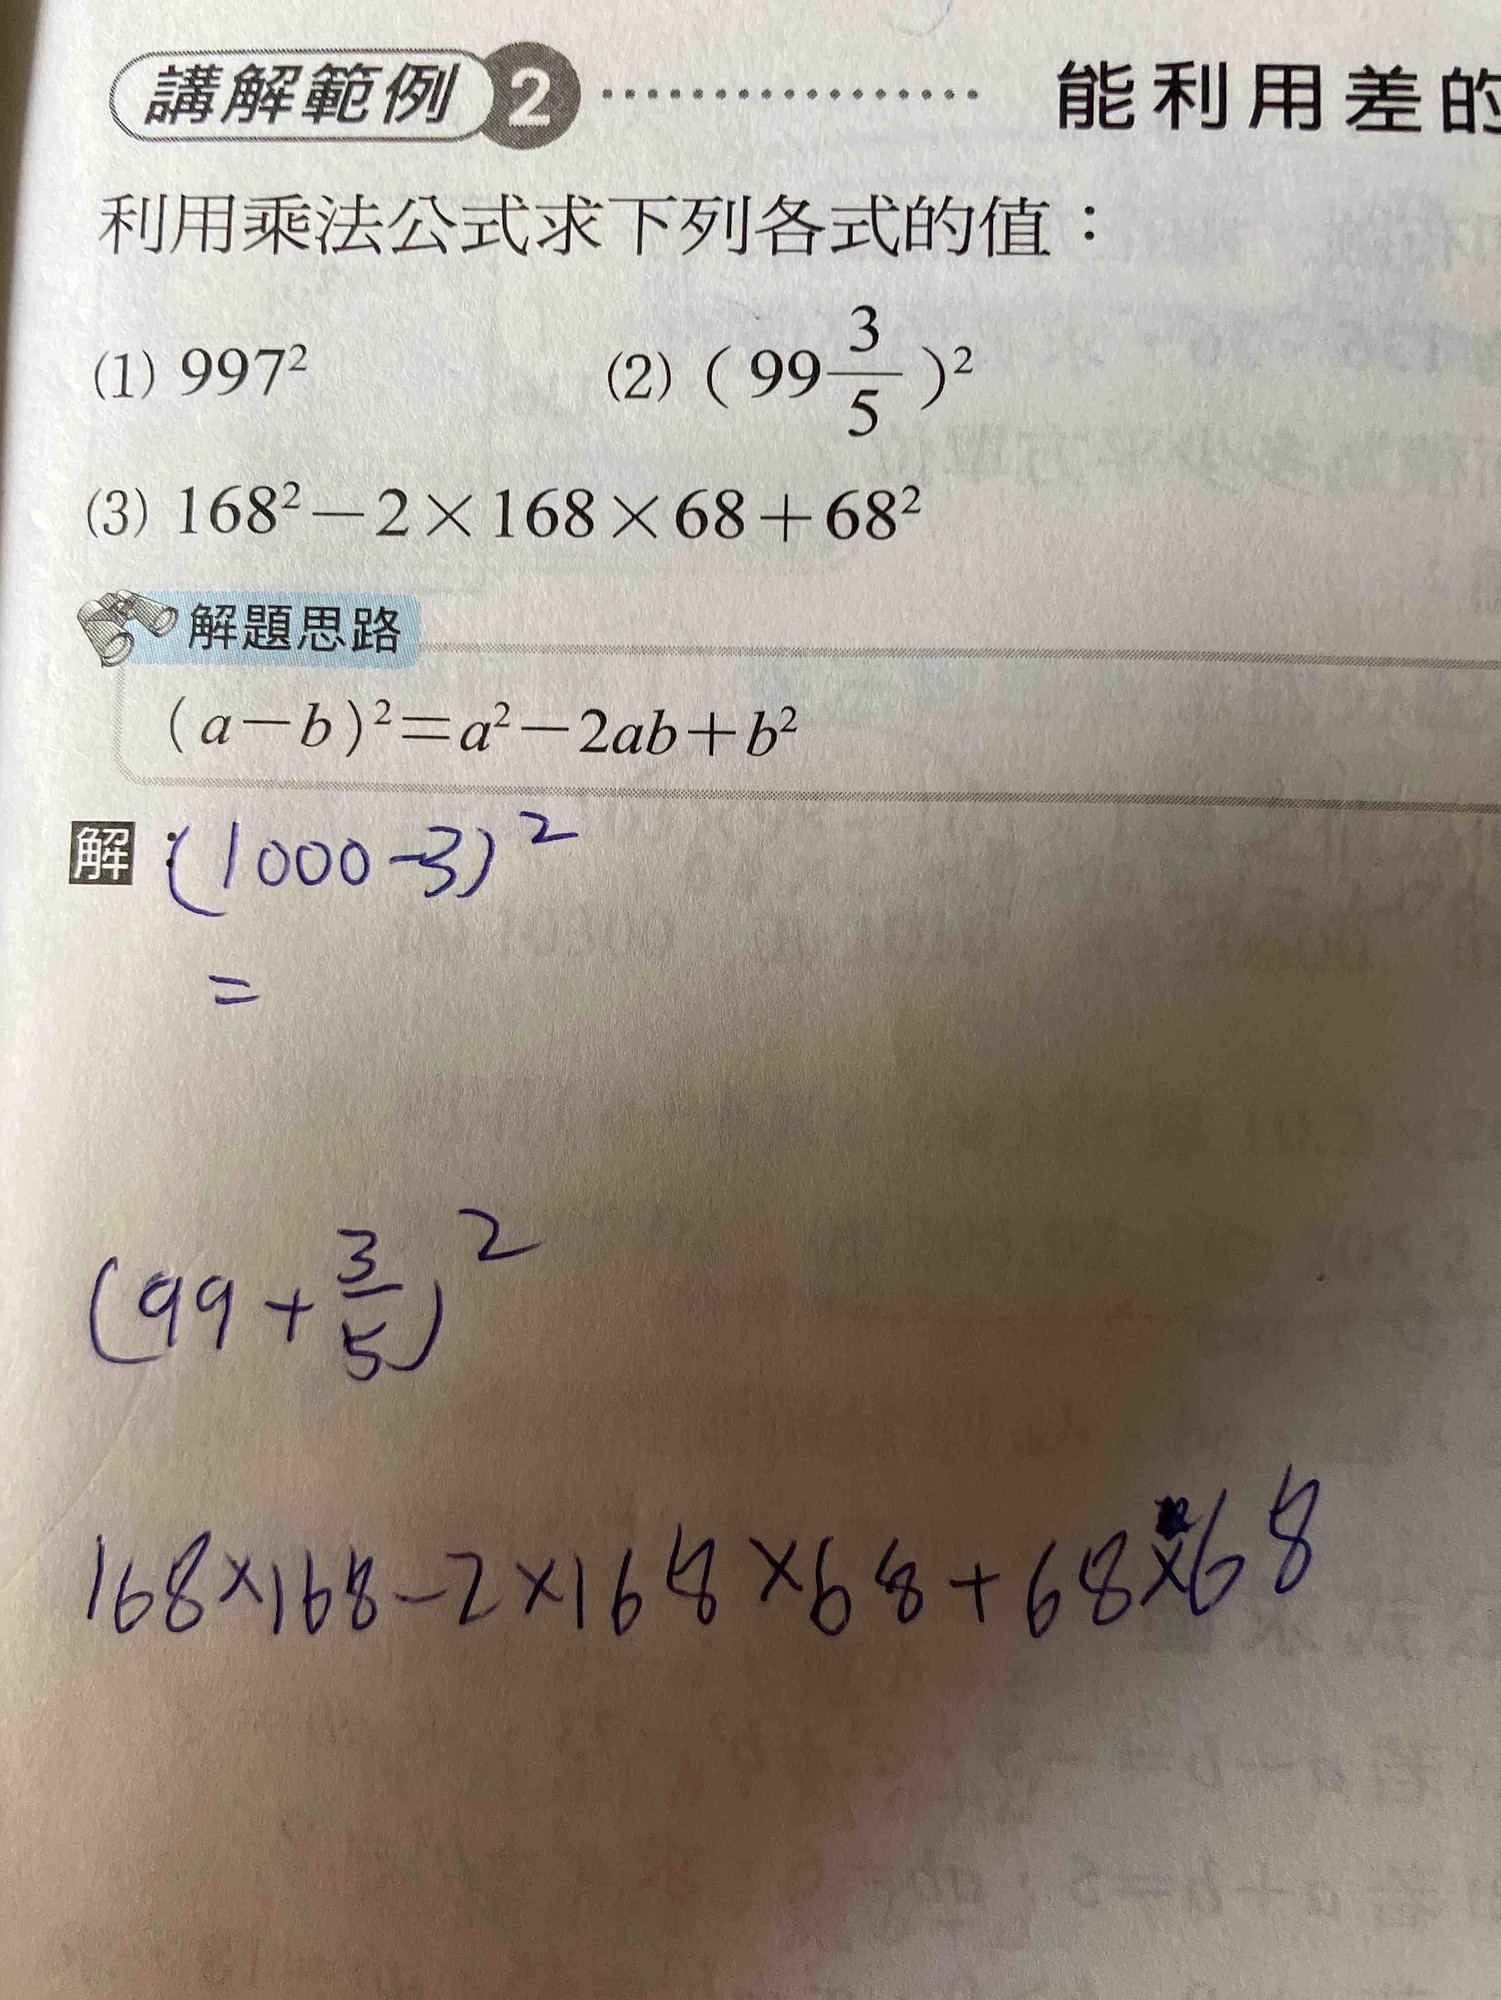 講解範例 2 ⋯⋯⋯⋯⋯⋯ 能利用差的
利用乘法公式求下列各式的值：
(1) 997² (2) ( 99 3/5 )²
(3) 168²－2×168×68＋68²
解題思路
( a－b )²＝a²－2ab＋b²
解：(1000-3)²
=
(99+3/5)²
168×168-2×168×68+68×68